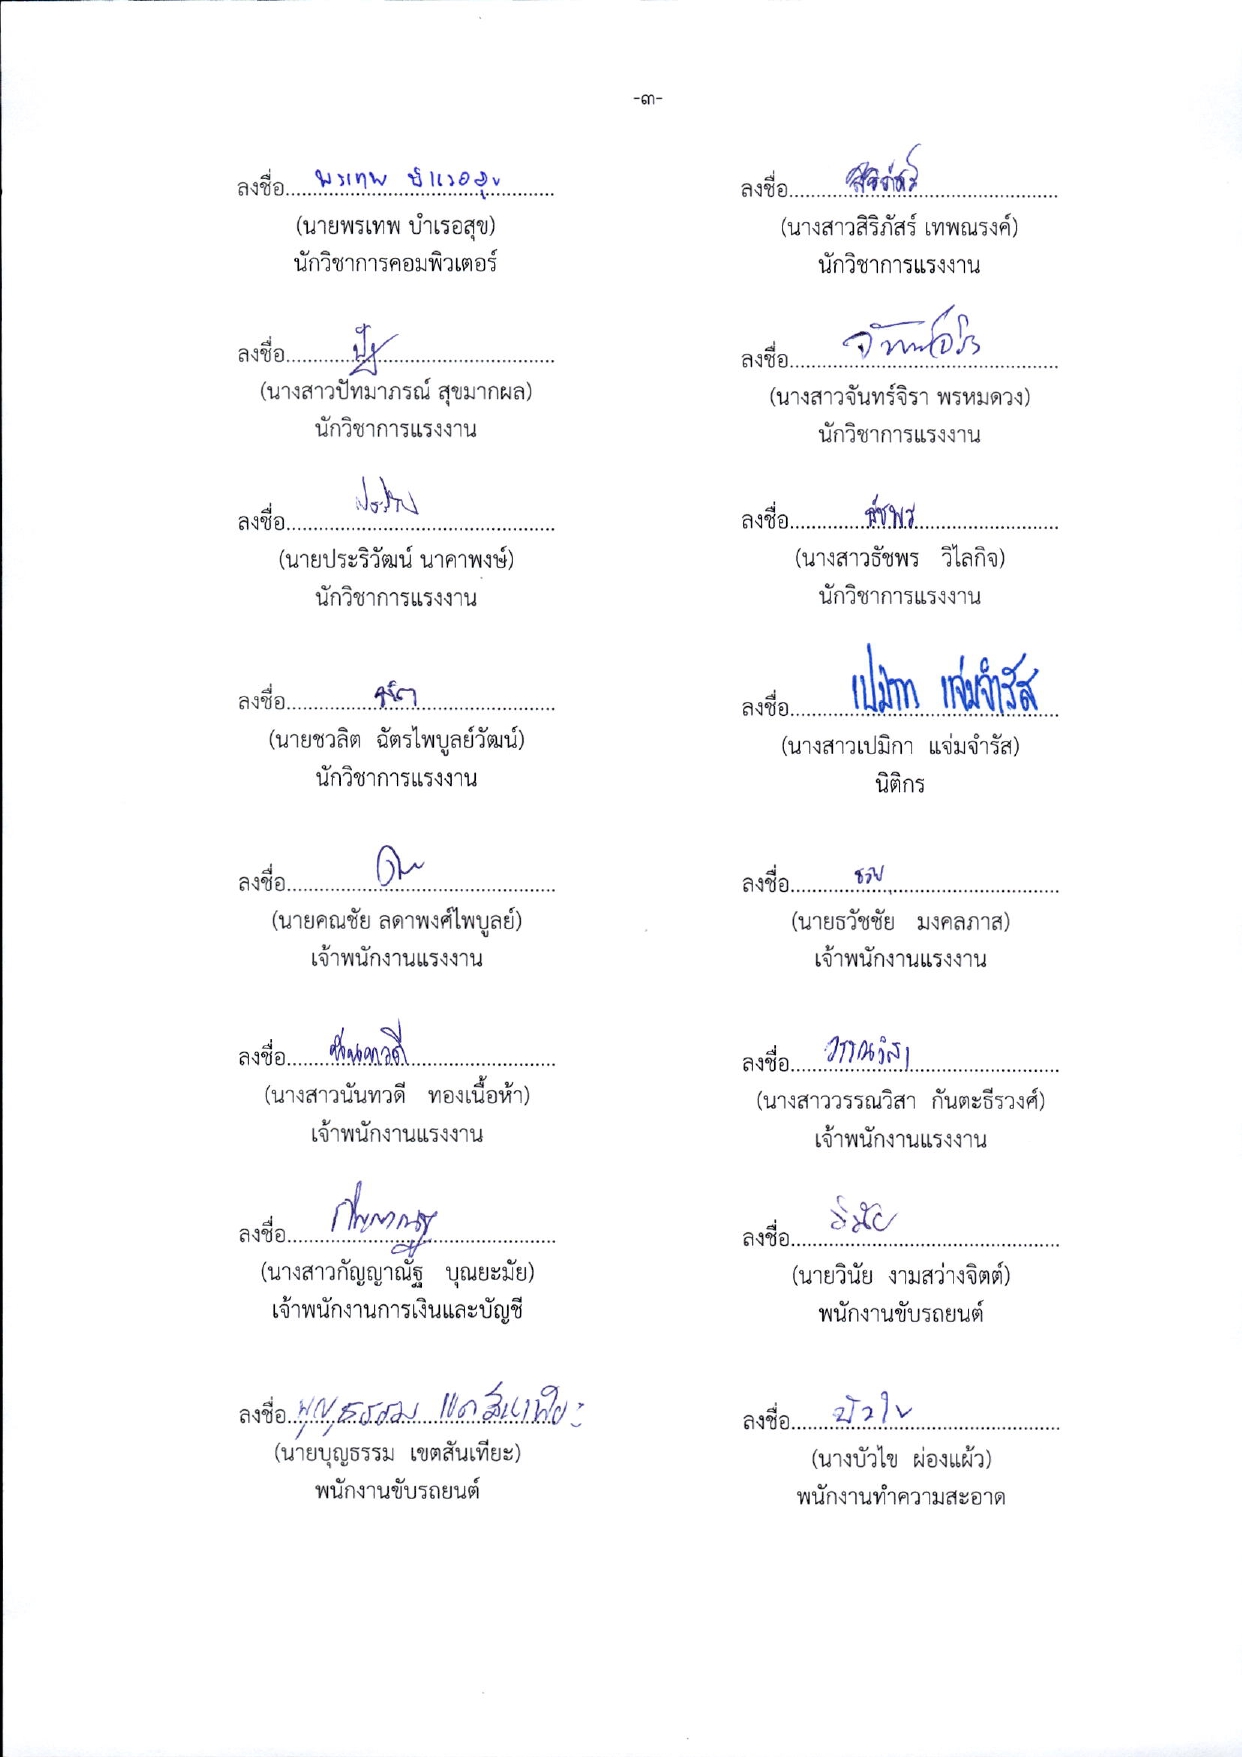 -๓-
ลงชื่อ พรเทพ บำเรอสุข
(นายพรเทพ บำเรอสุข)
นักวิชาการคอมพิวเตอร์
ลงชื่อ สิริภัสร์
(นางสาวสิริภัสร์ เทพณรงค์)
นักวิชาการแรงงาน
ลงชื่อ
(นางสาวปัทมาภรณ์ สุขมากผล)
นักวิชาการแรงงาน
ลงชื่อ จันทร์จิรา
(นางสาวจันทร์จิรา พรหมดวง)
นักวิชาการแรงงาน
ลงชื่อ
(นายประริวัฒน์ นาคาพงษ์)
นักวิชาการแรงงาน
ลงชื่อ ธัชพร
(นางสาวธัชพร วิไลกิจ)
นักวิชาการแรงงาน
ลงชื่อ
(นายชวลิต ฉัตรไพบูลย์วัฒน์)
นักวิชาการแรงงาน
ลงชื่อ เปมิกา แจ่มจำรัส
(นางสาวเปมิกา แจ่มจำรัส)
นิติกร
ลงชื่อ
(นายคณชัย ลดาพงศ์ไพบูลย์)
เจ้าพนักงานแรงงาน
ลงชื่อ
(นายธวัชชัย มงคลภาส)
เจ้าพนักงานแรงงาน
ลงชื่อ นันทวดี
(นางสาวนันทวดี ทองเนื้อห้า)
เจ้าพนักงานแรงงาน
ลงชื่อ วรรณวิสา
(นางสาววรรณวิสา กันตะธีรวงศ์)
เจ้าพนักงานแรงงาน
ลงชื่อ กัญญาณัฐ
(นางสาวกัญญาณัฐ บุณยะมัย)
เจ้าพนักงานการเงินและบัญชี
ลงชื่อ วินัย
(นายวินัย งามสว่างจิตต์)
พนักงานขับรถยนต์
ลงชื่อ บุญธรรม เขตสันเทียะ
(นายบุญธรรม เขตสันเทียะ)
พนักงานขับรถยนต์
ลงชื่อ บัวไข
(นางบัวไข ผ่องแผ้ว)
พนักงานทำความสะอาด